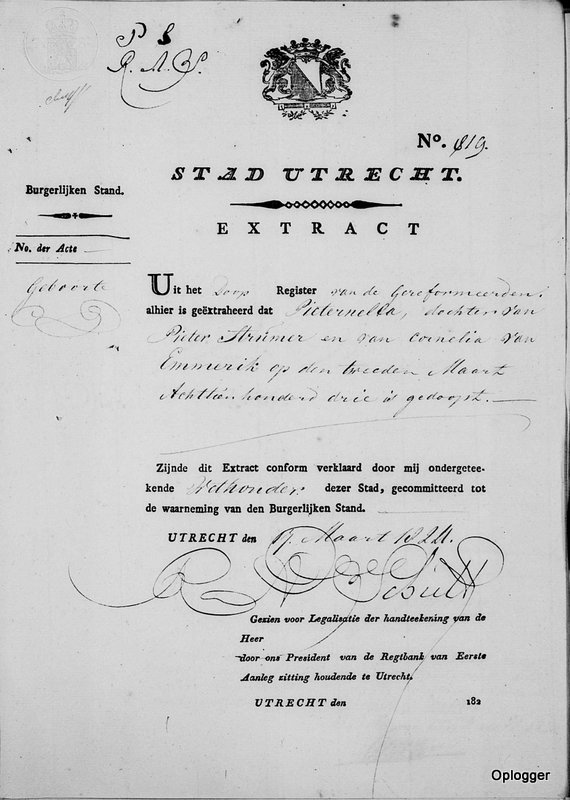 P S
R. A. Z.
No. 819.
STAD UTRECHT.
Burgerlijken Stand.
EXTRACT
No. der Acte
Geboorte
Uit het Doop Register van de Gereformeerden,
alhier is geëxtraheerd dat Pieternella, dochter van
Pieter Strumer en van Cornelia van
Emmerik op den tweeden Maart
Achttienhonderd drie is gedoopt.
Zijnde dit Extract conform verklaard door mij ondergetee-
kende Wethouder dezer Stad, gecommitteerd tot
de waarneming van den Burgerlijken Stand.
UTRECHT den 17 Maart 1824.
Gezien voor Legalisatie der handteekening van de
Heer
door ons President van de Regtbank van Eerste
Aanleg zitting houdende te Utrecht.
UTRECHT den 182
Oplogger